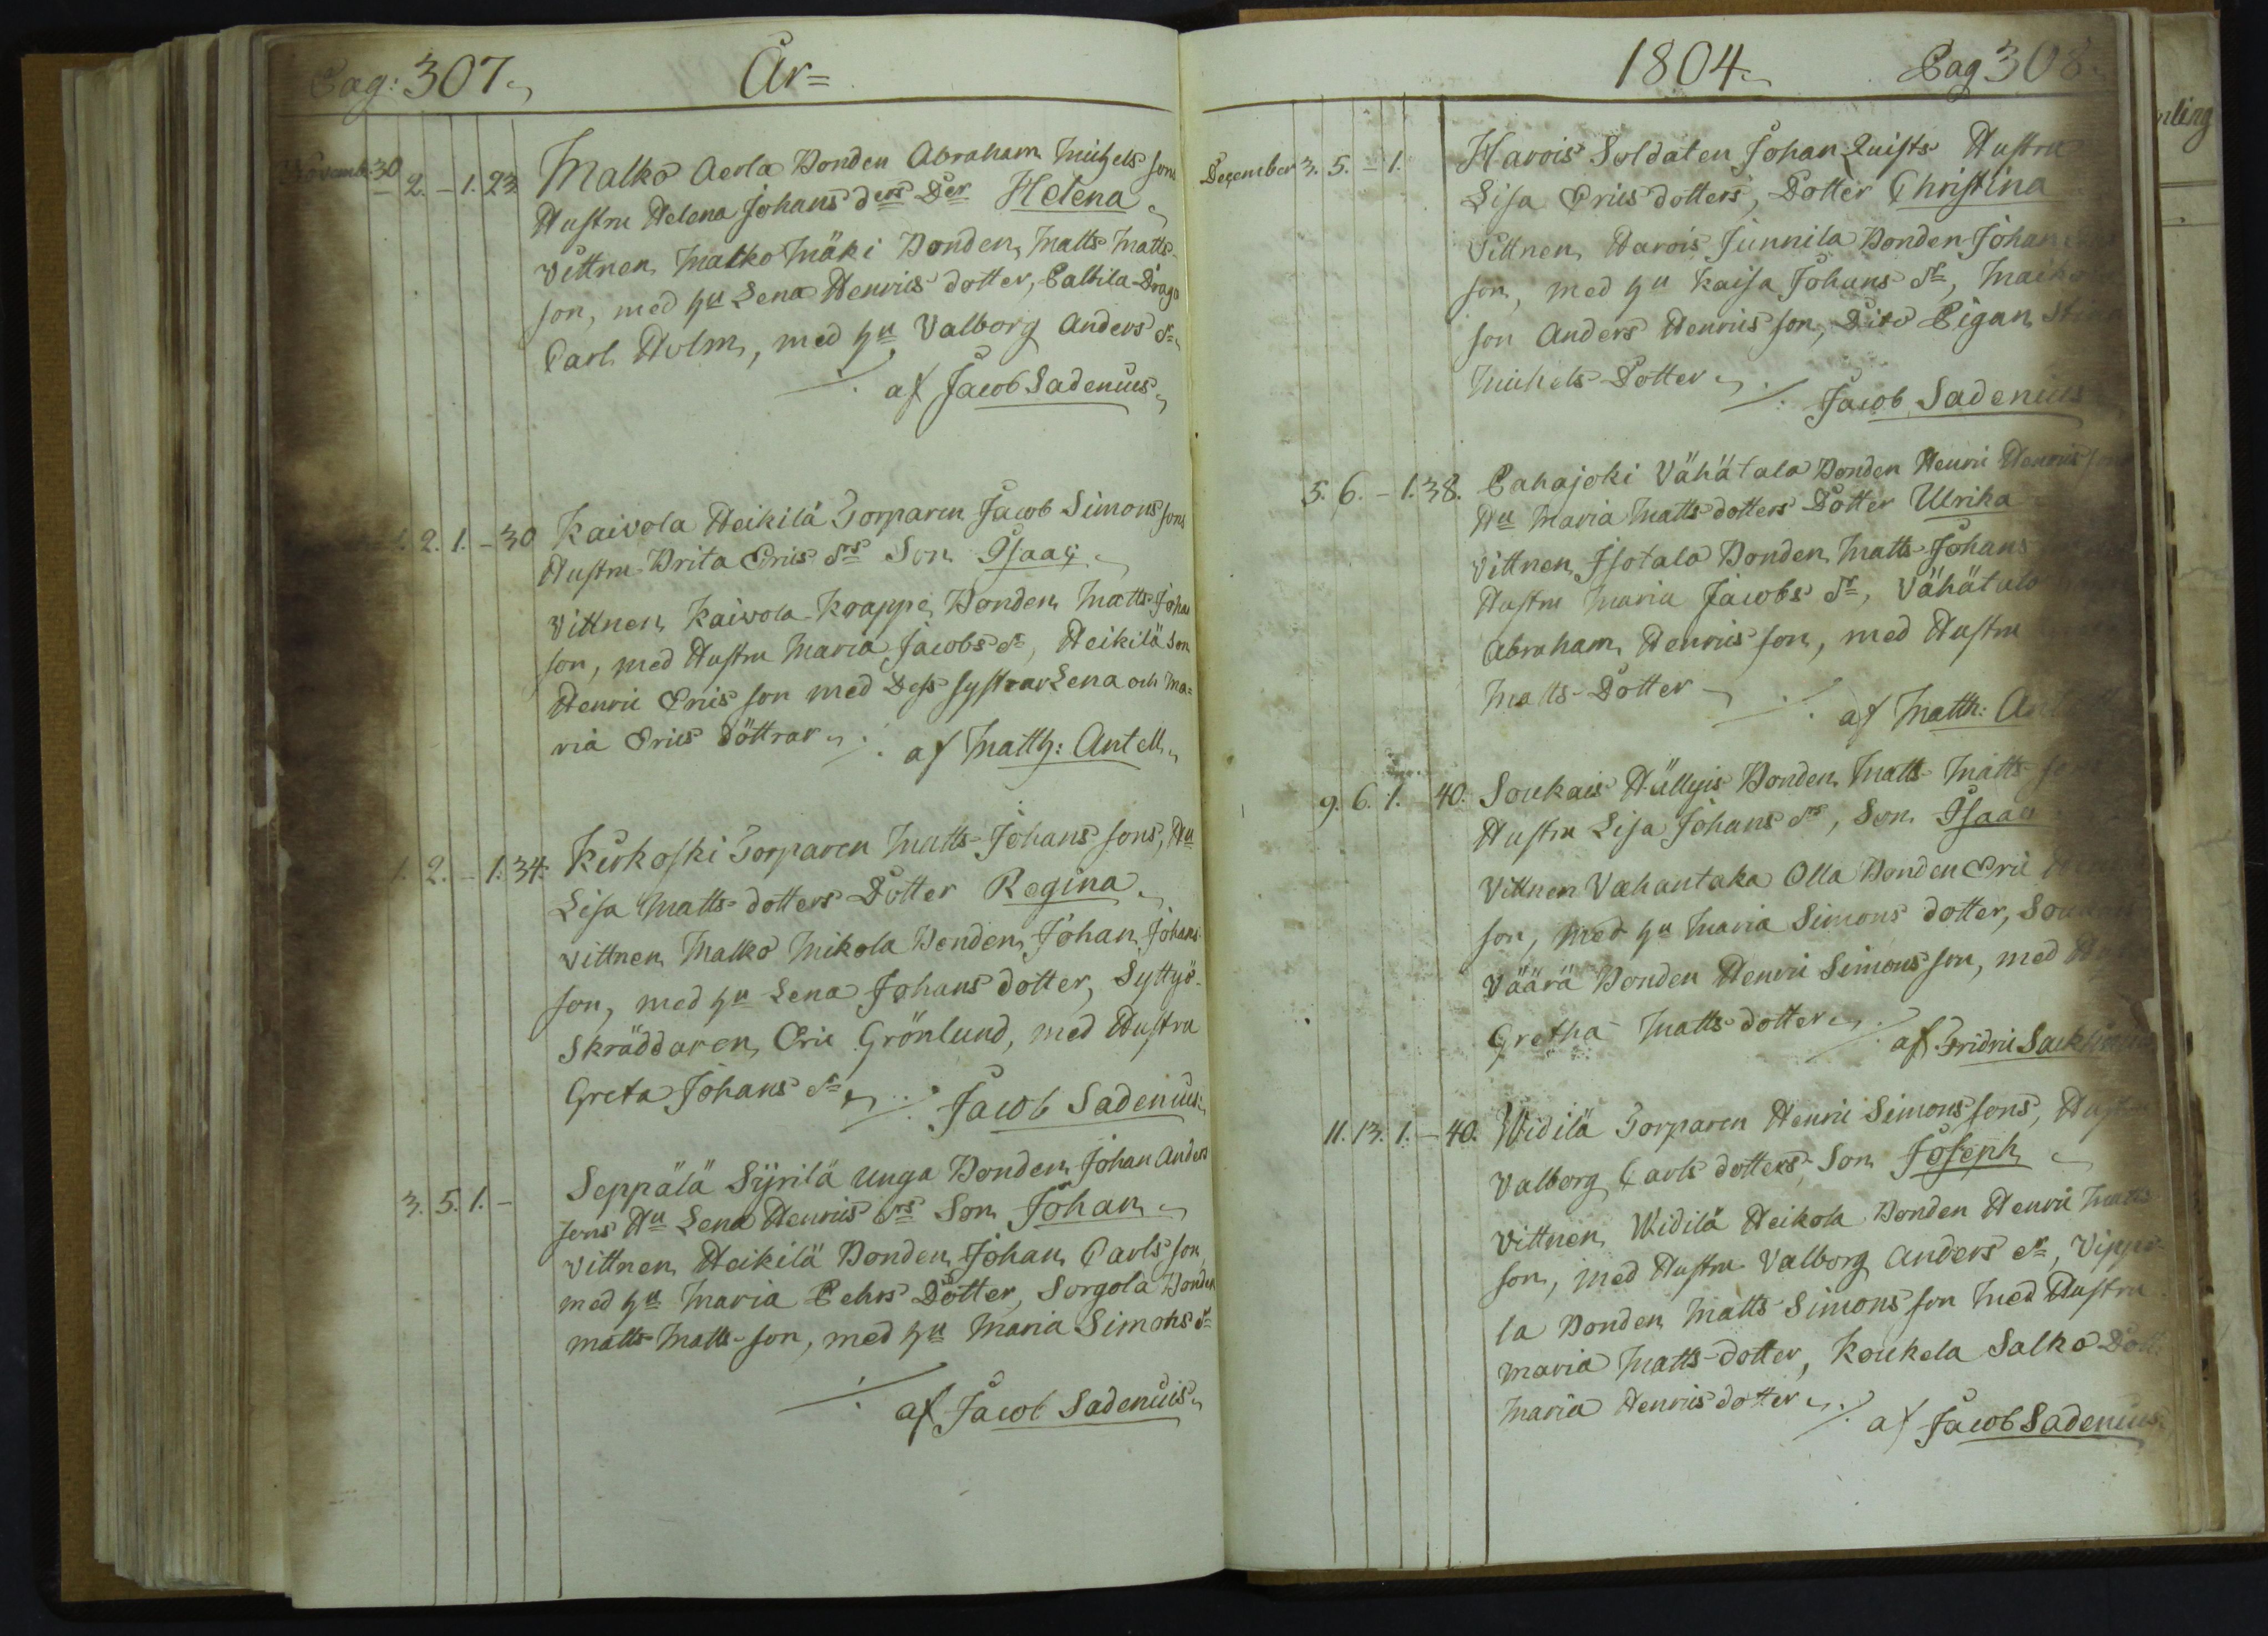 Pag: 307.
År=
Novemb: 30 2. - 1. 23. Malko Aerla Bonden Abraham Michels sons
Hustru Helena Johans ders Der Helena
Vittnen Malko Mäki Bonden Matts Matts-
son, med hu Lena Henrics dotter, Palhila Drag.
Carl Holm, med hu Valborg Anders dr
af Jacob Sadenius
1. 2. 1. - 30 Kaivola Heikilä Torparen Jacob Simons sons
Hustru Brita Erics drs Son Isaac
Vittnen Kaivola Krappe Bonden Matts Johans
son, med Hustru Maria Jacobs dr, Heikilä Son
Henric Erics son med Dess systrar Lena och Ma=
ria Erics döttrar
af Matth: Antell
1. 2. - 1. 34. Kirkoski Torparen Matts Johans sons, Hu
Lisa Matts dotters Dotter Regina
vittnen Malko Mikola Bonden Johan Johans
son, med hu Lena Johans dotter, Syttyö
Skräddaren Eric Grönlund, med Hustru
Greta Johans dr
Jacob Sadenius
3. 5. 1. - Seppälä Sÿrilä unga Bonden Johan Anders
sons Hu Lena Henrics drs Son Johan
vittnen Heikilä Bonden Johan Carls son
med hu Maria Pehrs Dotter, Sorgola Bonden
Matts Matts son, med hu Maria Simons dr
af Jacob Sadenius
1804.
Pag 308.
December 3. 5. - 1. Harois Soldaten Johan Quists Hustru
Lisa Erics dotters, Dotter Christina
Vittnen Harois Junnila Bonden Johan
son, med hu Kaisa Johans dr,
son Anders Henrics son, Dito Pigan Stina
Michels Dotter
Jacob Sadenius
5. 6. - 1. 38. Pahajoki Vähätalo Bonden Henric Henrics sons
Hu Maria Matts dotters Dotter Ulrika
Vittnen Isotalo Bonden Matts Johans
Hustru Maria Jacobs dr, Vähätalo
Abraham Henrics son, med Hustru
Matts Dotter
af Matth: Antell
9. 6. 1. 40. Soukais Hällyis Bonden Matts Matts sons
Hustru Lisa Johans drs, Son Isaac
Vittnen Vahantaka Olla Bonden Eric
son, med hu Maria Simons dotter, Soukais
Väärä Bonden Henric Simons son, med Hu
Gretha Matts dotter
af Fridric
11. 13. 1. - 40. Widilä Torparen Henric Simons sons, Hustru
Valborg Carls dotters, Son Joseph
Vittnen Widilä Heikola Bonden Henric Matts
son, med Hustru Valborg Anders dr, Vippo-
la Bonden Matts Simons son med Hustru
Maria Matts dotter, Koukela Salko Dott.
Maria Henrics dotter
af Jacob Sadenius